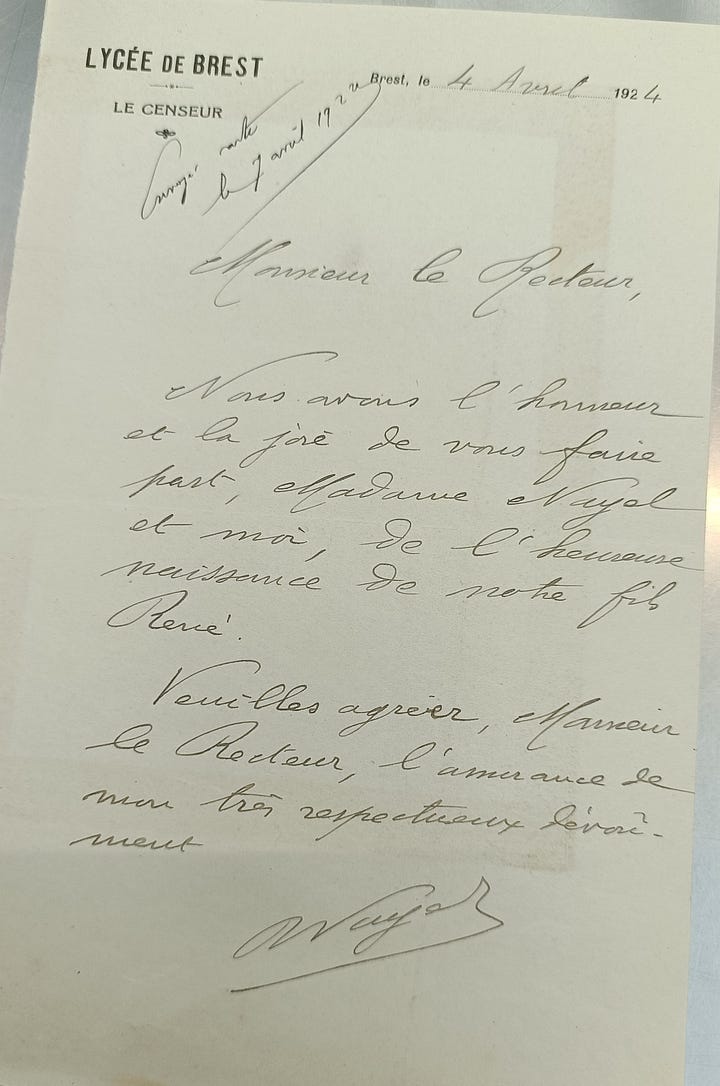 LYCÉE DE BREST
LE CENSEUR
Brest, le 4 Avril 1924
Envoyé carte
le 7 avril 1924
Monsieur le Recteur,
Nous avons l'honneur
et la joie de vous faire
part, Madame Nayel
et moi, de l'heureuse
naissance de notre fils
René.
Veuilles agréer, Monsieur
le Recteur, l'assurance de
mon très respectueux dévoû-
ment
Nayel